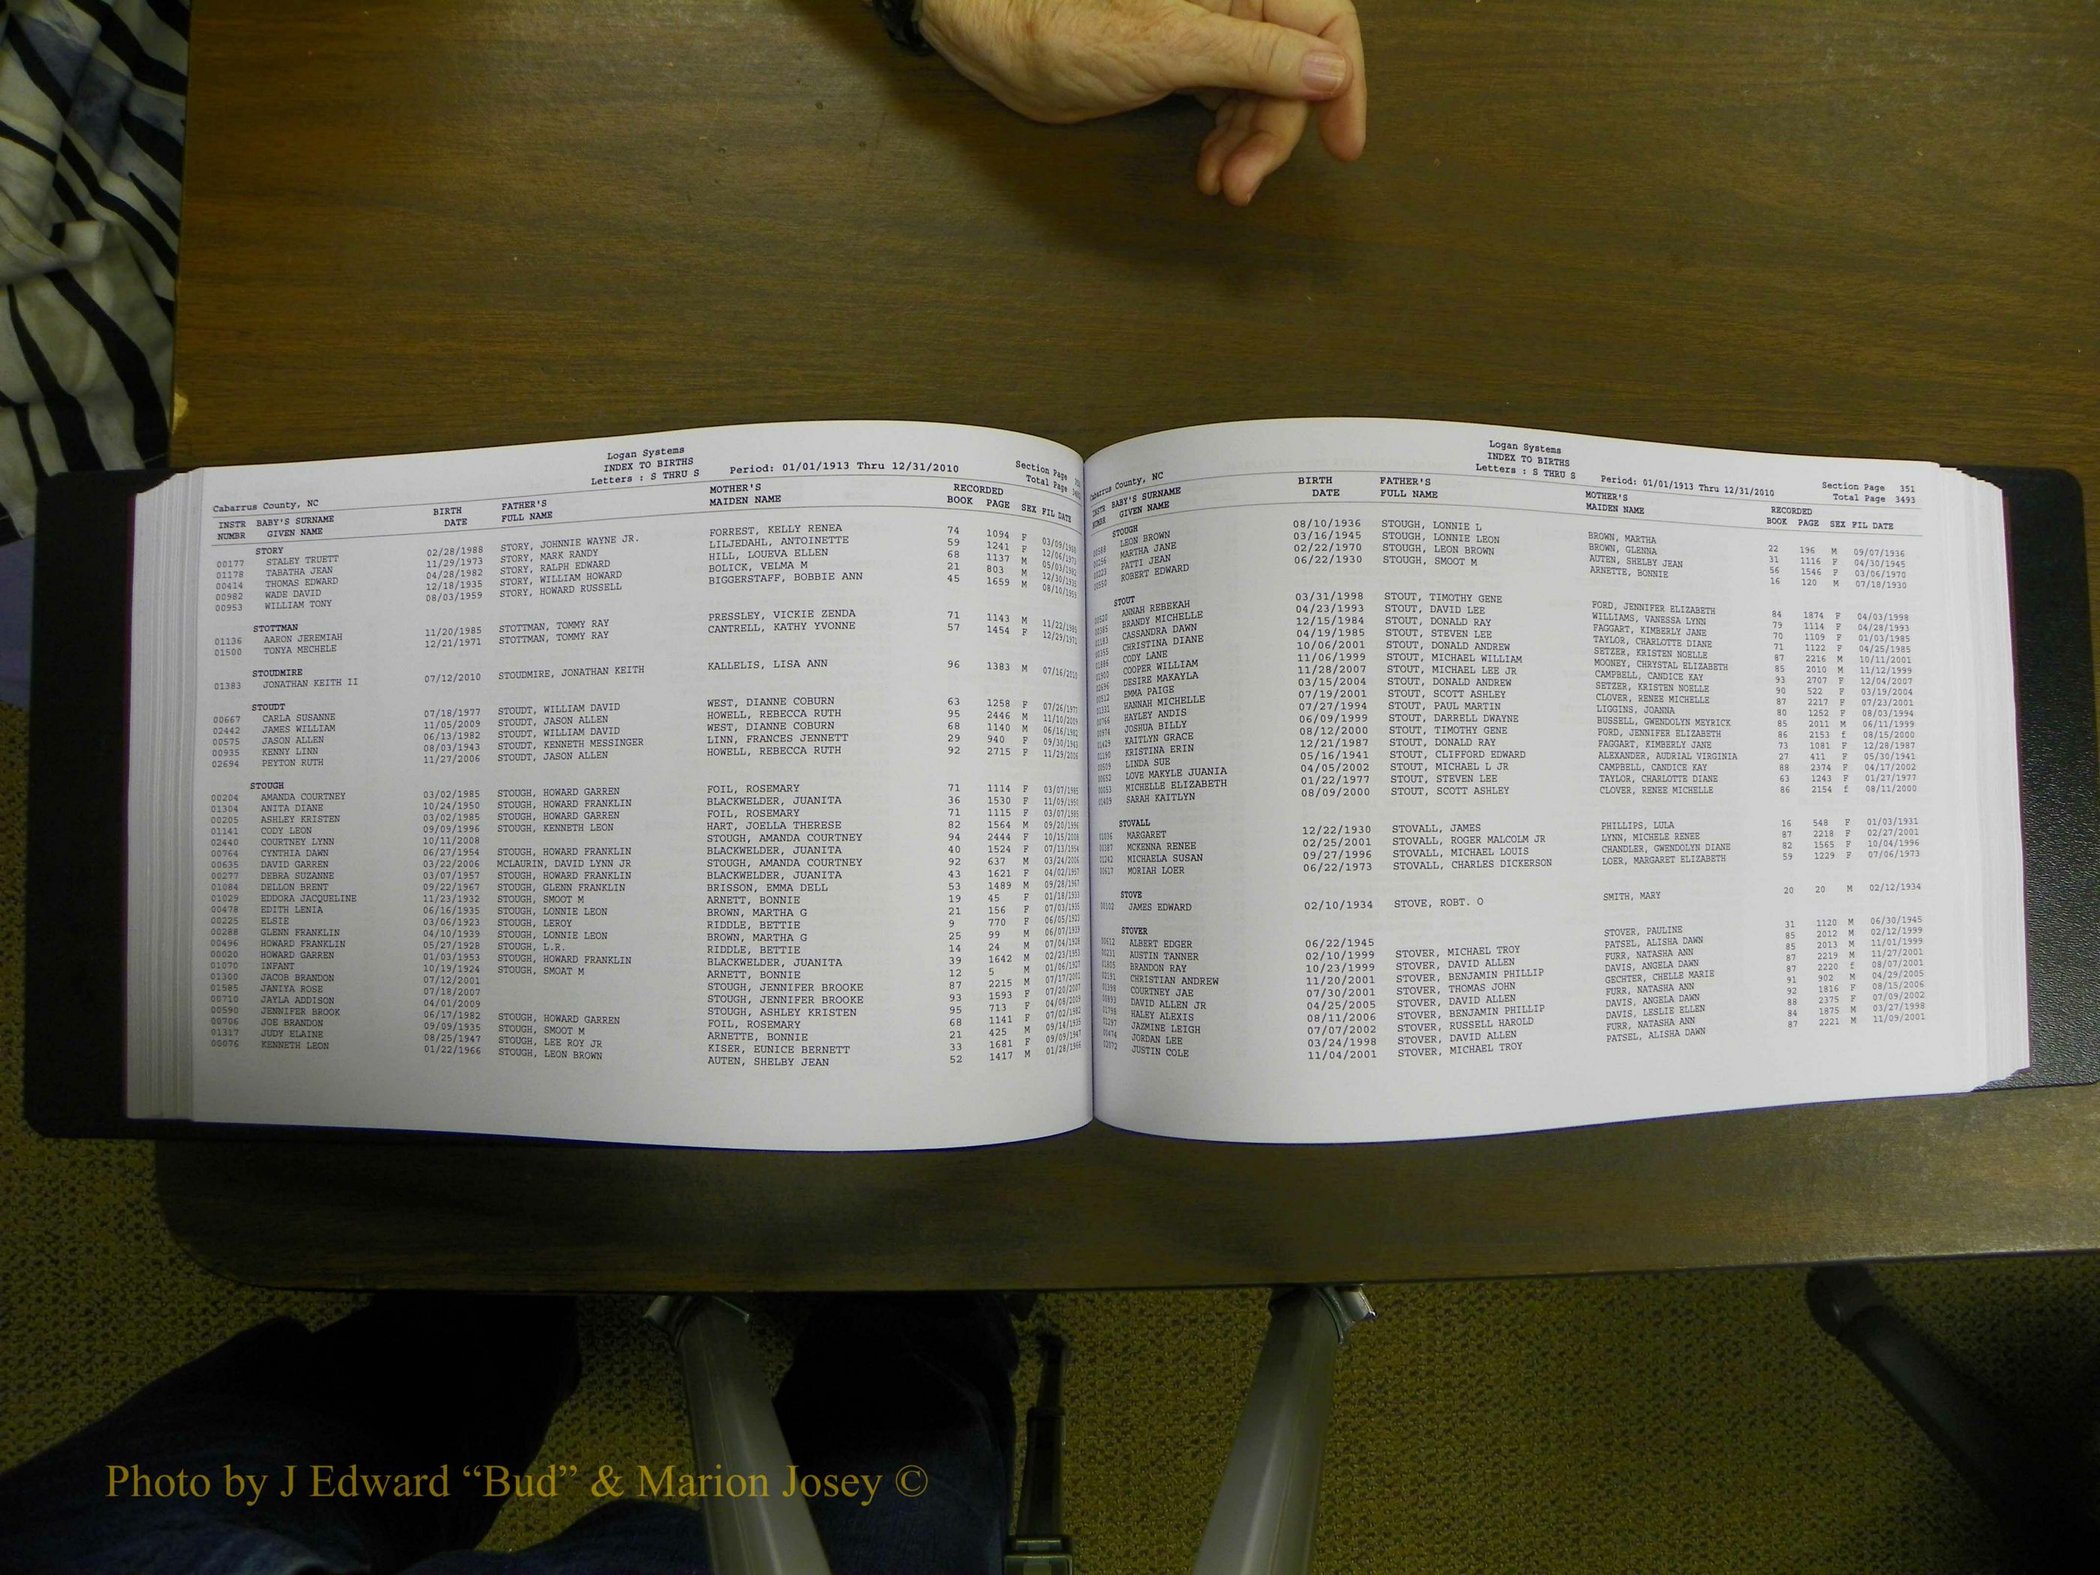 Logan Systems
INDEX TO BIRTHS
Letters : S THRU S
Cabarrus County, NC Period: 01/01/1913 Thru 12/31/2010 Section Page
Total Page
INSTR BABY'S SURNAME BIRTH FATHER'S MOTHER'S RECORDED
NUMBR GIVEN NAME DATE FULL NAME MAIDEN NAME BOOK PAGE SEX FIL DATE
STORY
00177 STALEY TRUETT 02/28/1988 STORY, JOHNNIE WAYNE JR. FORREST, KELLY RENEA 74 1094 F
01178 TABATHA JEAN 11/29/1973 STORY, MARK RANDY LILJEDAHL, ANTOINETTE 59 1241 F 12/06/1973
00414 THOMAS EDWARD 04/28/1982 STORY, RALPH EDWARD HILL, LOUEVA ELLEN 68 1137 M 05/03/1982
00982 WADE DAVID 12/18/1935 STORY, WILLIAM HOWARD BOLICK, VELMA M 21 803 M 12/30/1935
00953 WILLIAM TONY 08/03/1959 STORY, HOWARD RUSSELL BIGGERSTAFF, BOBBIE ANN 45 1659 M 08/10/1959
STOTTMAN
01136 AARON JEREMIAH 11/20/1985 STOTTMAN, TOMMY RAY PRESSLEY, VICKIE ZENDA 71 1143 M 11/22/1985
01500 TONYA MECHELE 12/21/1971 STOTTMAN, TOMMY RAY CANTRELL, KATHY YVONNE 57 1454 F 12/29/1971
STOUDMIRE
01383 JONATHAN KEITH II 07/12/2010 STOUDMIRE, JONATHAN KEITH KALLELIS, LISA ANN 96 1383 M 07/16/2010
STOUDT
00667 CARLA SUSANNE 07/18/1977 STOUDT, WILLIAM DAVID WEST, DIANNE COBURN 63 1258 F 07/26/1977
02442 JAMES WILLIAM 11/05/2009 STOUDT, JASON ALLEN HOWELL, REBECCA RUTH 95 2446 M 11/10/2009
00575 JASON ALLEN 06/13/1982 STOUDT, WILLIAM DAVID WEST, DIANNE COBURN 68 1140 M 06/16/1982
00935 KENNY LINN 08/03/1943 STOUDT, KENNETH MESSINGER LINN, FRANCES JENNETT 29 940 F 09/30/1943
02694 PEYTON RUTH 11/27/2006 STOUDT, JASON ALLEN HOWELL, REBECCA RUTH 92 2715 F 11/29/2006
STOUGH
00204 AMANDA COURTNEY 03/02/1985 STOUGH, HOWARD GARREN FOIL, ROSEMARY 71 1114 F 03/07/1985
01304 ANITA DIANE 10/24/1950 STOUGH, HOWARD FRANKLIN BLACKWELDER, JUANITA 36 1530 F 11/09/1950
00205 ASHLEY KRISTEN 03/02/1985 STOUGH, HOWARD GARREN FOIL, ROSEMARY 71 1115 F 03/07/1985
01141 CODY LEON 09/09/1996 STOUGH, KENNETH LEON HART, JOELLA THERESE 82 1564 M 09/20/1996
02440 COURTNEY LYNN 10/11/2008 STOUGH, AMANDA COURTNEY 94 2444 F 10/15/2008
00764 CYNTHIA DAWN 06/27/1954 STOUGH, HOWARD FRANKLIN BLACKWELDER, JUANITA 40 1524 F 07/13/1954
00635 DAVID GARREN 03/22/2006 MCLAURIN, DAVID LYNN JR STOUGH, AMANDA COURTNEY 92 637 M 03/24/2006
00277 DEBRA SUZANNE 03/07/1957 STOUGH, HOWARD FRANKLIN BLACKWELDER, JUANITA 43 1621 F 04/02/1957
01084 DELLON BRENT 09/22/1967 STOUGH, GLENN FRANKLIN BRISSON, EMMA DELL 53 1489 M 09/28/1967
01029 EDDORA JACQUELINE 11/23/1932 STOUGH, SMOOT M ARNETT, BONNIE 19 45 F 01/18/1933
00478 EDITH LENIA 06/16/1935 STOUGH, LONNIE LEON BROWN, MARTHA G 21 156 F 07/03/1935
00225 ELSIE 03/06/1923 STOUGH, LEROY RIDDLE, BETTIE 9 770 F 06/05/1923
00288 GLENN FRANKLIN 04/10/1939 STOUGH, LONNIE LEON BROWN, MARTHA G 25 99 M 06/07/1939
00496 HOWARD FRANKLIN 05/27/1928 STOUGH, L.R. RIDDLE, BETTIE 14 24 M 07/04/1928
00020 HOWARD GARREN 01/03/1953 STOUGH, HOWARD FRANKLIN BLACKWELDER, JUANITA 39 1642 M 02/23/1953
01070 INFANT 10/19/1924 STOUGH, SMOAT M ARNETT, BONNIE 12 5 M 01/06/1927
01300 JACOB BRANDON 07/12/2001 STOUGH, JENNIFER BROOKE 87 2215 M 07/17/2001
01585 JANIYA ROSE 07/18/2007 STOUGH, JENNIFER BROOKE 93 1593 F 07/20/2007
00710 JAYLA ADDISON 04/01/2009 STOUGH, ASHLEY KRISTEN 95 713 F 04/08/2009
00590 JENNIFER BROOK 06/17/1982 STOUGH, HOWARD GARREN FOIL, ROSEMARY 68 1141 F 07/02/1982
00706 JOE BRANDON 09/09/1935 STOUGH, SMOOT M ARNETTE, BONNIE 21 425 M 09/14/1935
01317 JUDY ELAINE 08/25/1947 STOUGH, LEE ROY JR KISER, EUNICE BERNETT 33 1681 F 09/09/1947
00076 KENNETH LEON 01/22/1966 STOUGH, LEON BROWN AUTEN, SHELBY JEAN 52 1417 M 01/28/1966
Logan Systems
INDEX TO BIRTHS
Letters : S THRU S
Cabarrus County, NC Period: 01/01/1913 Thru 12/31/2010 Section Page 351
Total Page 3493
INSTR BABY'S SURNAME BIRTH FATHER'S MOTHER'S RECORDED
NUMBR GIVEN NAME DATE FULL NAME MAIDEN NAME BOOK PAGE SEX FIL DATE
STOUGH
LEON BROWN 08/10/1936 STOUGH, LONNIE L BROWN, MARTHA 22 196 M 09/07/1936
MARTHA JANE 03/16/1945 STOUGH, LONNIE LEON BROWN, GLENNA 31 1116 F 04/30/1945
PATTI JEAN 02/22/1970 STOUGH, LEON BROWN AUTEN, SHELBY JEAN 56 1546 F 03/06/1970
ROBERT EDWARD 06/22/1930 STOUGH, SMOOT M ARNETTE, BONNIE 16 120 M 07/18/1930
STOUT
ANNAH REBEKAH 03/31/1998 STOUT, TIMOTHY GENE FORD, JENNIFER ELIZABETH 84 1874 F 04/03/1998
BRANDY MICHELLE 04/23/1993 STOUT, DAVID LEE WILLIAMS, VANESSA LYNN 79 1114 F 04/28/1993
CASSANDRA DAWN 12/15/1984 STOUT, DONALD RAY FAGGART, KIMBERLY JANE 70 1109 F 01/03/1985
CHRISTINA DIANE 04/19/1985 STOUT, STEVEN LEE TAYLOR, CHARLOTTE DIANE 71 1122 F 04/25/1985
CODY LANE 10/06/2001 STOUT, DONALD ANDREW SETZER, KRISTEN NOELLE 87 2216 M 10/11/2001
COOPER WILLIAM 11/06/1999 STOUT, MICHAEL WILLIAM MOONEY, CHRYSTAL ELIZABETH 85 2010 M 11/12/1999
DESIRE MAKAYLA 11/28/2007 STOUT, MICHAEL LEE JR CAMPBELL, CANDICE KAY 93 2707 F 12/04/2007
EMMA PAIGE 03/15/2004 STOUT, DONALD ANDREW SETZER, KRISTEN NOELLE 90 522 F 03/19/2004
HANNAH MICHELLE 07/19/2001 STOUT, SCOTT ASHLEY CLOVER, RENEE MICHELLE 87 2217 F 07/23/2001
HAYLEY ANDIS 07/27/1994 STOUT, PAUL MARTIN LIGGINS, JOANNA 80 1252 F 08/03/1994
JOSHUA BILLY 06/09/1999 STOUT, DARRELL DWAYNE BUSSELL, GWENDOLYN MEYRICK 85 2011 M 06/11/1999
KAITLYN GRACE 08/12/2000 STOUT, TIMOTHY GENE FORD, JENNIFER ELIZABETH 86 2153 f 08/15/2000
KRISTINA ERIN 12/21/1987 STOUT, DONALD RAY FAGGART, KIMBERLY JANE 73 1081 F 12/28/1987
LINDA SUE 05/16/1941 STOUT, CLIFFORD EDWARD ALEXANDER, AUDRIAL VIRGINIA 27 411 F 05/30/1941
LOVE MAKYLE JUANIA 04/05/2002 STOUT, MICHAEL L JR CAMPBELL, CANDICE KAY 88 2374 F 04/17/2002
MICHELLE ELIZABETH 01/22/1977 STOUT, STEVEN LEE TAYLOR, CHARLOTTE DIANE 63 1243 F 01/27/1977
SARAH KAITLYN 08/09/2000 STOUT, SCOTT ASHLEY CLOVER, RENEE MICHELLE 86 2154 f 08/11/2000
STOVALL
MARGARET 12/22/1930 STOVALL, JAMES PHILLIPS, LULA 16 548 F 01/03/1931
MCKENNA RENEE 02/25/2001 STOVALL, ROGER MALCOLM JR LYNN, MICHELE RENEE 87 2218 F 02/27/2001
MICHAELA SUSAN 09/27/1996 STOVALL, MICHAEL LOUIS CHANDLER, GWENDOLYN DIANE 82 1565 F 10/04/1996
MORIAH LOER 06/22/1973 STOVALL, CHARLES DICKERSON LOER, MARGARET ELIZABETH 59 1229 F 07/06/1973
STOVE
JAMES EDWARD 02/10/1934 STOVE, ROBT. O SMITH, MARY 20 20 M 02/12/1934
STOVER
ALBERT EDGER 06/22/1945 STOVER, PAULINE 31 1120 M 06/30/1945
AUSTIN TANNER 02/10/1999 STOVER, MICHAEL TROY PATSEL, ALISHA DAWN 85 2012 M 02/12/1999
BRANDON RAY 10/23/1999 STOVER, DAVID ALLEN FURR, NATASHA ANN 85 2013 M 11/01/1999
CHRISTIAN ANDREW 11/20/2001 STOVER, BENJAMIN PHILLIP DAVIS, ANGELA DAWN 87 2219 M 11/27/2001
COURTNEY JAE 07/30/2001 STOVER, THOMAS JOHN GECHTER, CHELLE MARIE 87 2220 f 08/07/2001
DAVID ALLEN JR 04/25/2005 STOVER, DAVID ALLEN FURR, NATASHA ANN 91 902 M 04/29/2005
HALEY ALEXIS 08/11/2006 STOVER, BENJAMIN PHILLIP DAVIS, ANGELA DAWN 92 1816 F 08/15/2006
JAZMINE LEIGH 07/07/2002 STOVER, RUSSELL HAROLD DAVIS, LESLIE ELLEN 88 2375 F 07/09/2002
JORDAN LEE 03/24/1998 STOVER, DAVID ALLEN FURR, NATASHA ANN 84 1875 M 03/27/1998
JUSTIN COLE 11/04/2001 STOVER, MICHAEL TROY PATSEL, ALISHA DAWN 87 2221 M 11/09/2001
Photo by J Edward “Bud” & Marion Josey ©